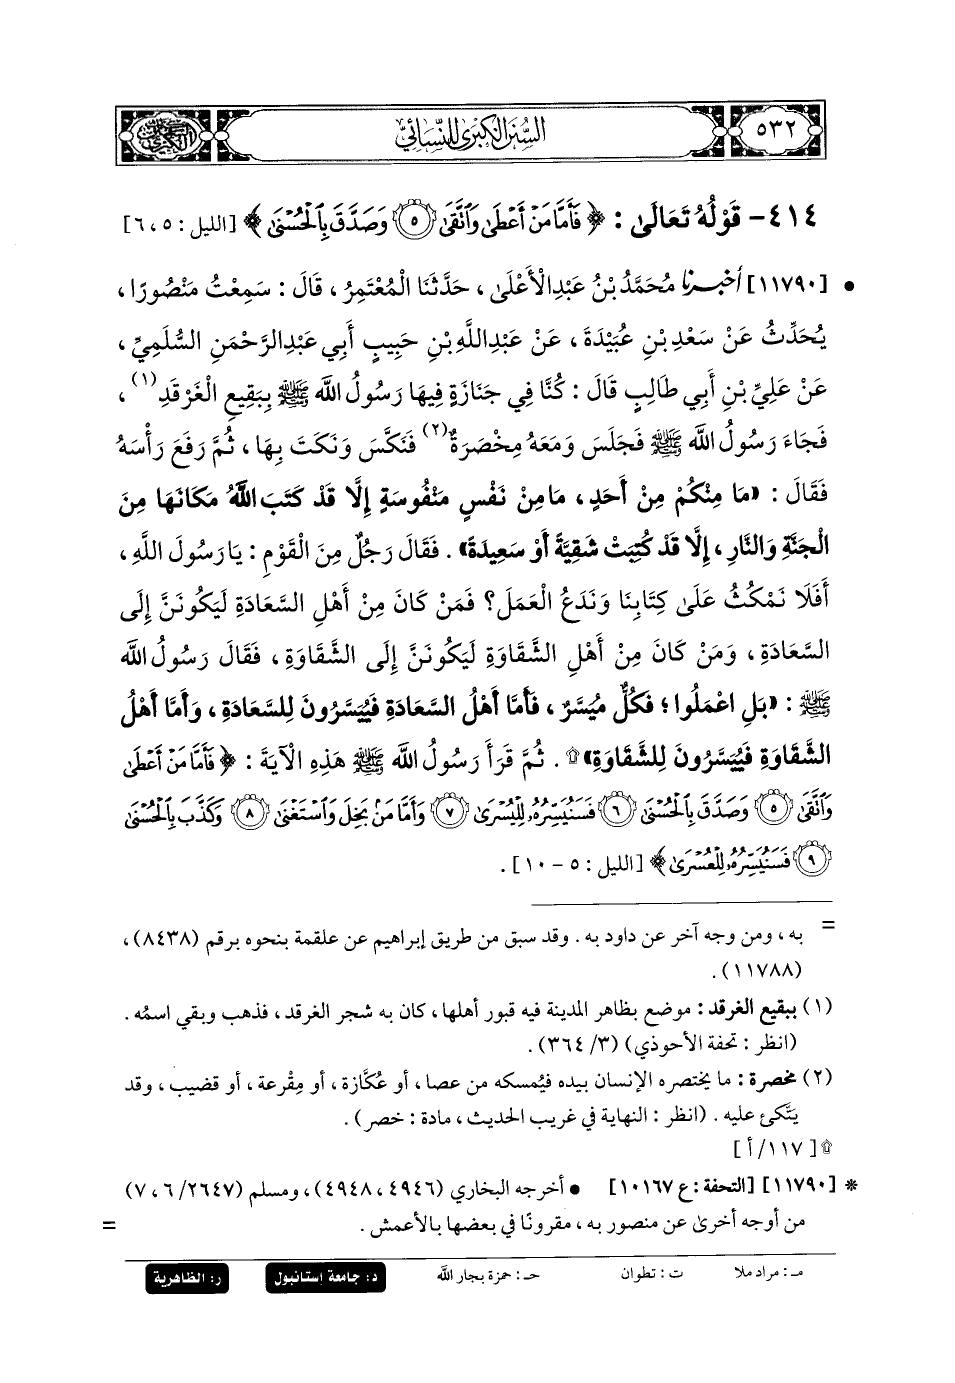 ٥٣٢
السُّنَنُ الكِبَرى للنَّسِائِيِّ
٤١٤- قَوْلُهُ تَعَالَى : ﴿ فَأَمَّا مَنْ أَعْطَى وَاتَّقَى ۝٥ وَصَدَّقَ بِالْحُسْنَى ﴾ [الليل : ٥، ٦]
• [١١٧٩٠] أخبرنا مُحَمَّدُ بْنُ عَبْدِ الْأَعْلَى ، حَدَّثَنَا الْمُعْتَمِرُ ، قَالَ : سَمِعْتُ مَنْصُورًا ،
يُحَدِّثُ عَنْ سَعْدِ بْنِ عُبَيْدَةَ ، عَنْ عَبْدِ اللَّهِ بْنِ حَبِيبٍ أَبِي عَبْدِ الرَّحْمَنِ السُّلَمِيِّ ،
عَنْ عَلِيِّ بْنِ أَبِي طَالِبٍ قَالَ : كُنَّا فِي جَنَازَةٍ فِيهَا رَسُولُ اللَّه ﷺ بِبَقِيعِ الْغَرْقَدِ (١) ،
فَجَاءَ رَسُولُ اللَّه ﷺ فَجَلَسَ وَمَعَهُ مِخْصَرَةٌ (٢) فَنَكَّسَ وَنَكَتَ بِهَا ، ثُمَّ رَفَعَ رَأْسَهُ
فَقَالَ : «مَا مِنْكُمْ مِنْ أَحَدٍ ، مَا مِنْ نَفْسٍ مَنْفُوسَةٍ إِلَّا قَدْ كَتَبَ اللَّهُ مَكَانَهَا مِنَ
الْجَنَّةِ وَالنَّارِ ، إِلَّا قَدْ كُتِبَتْ شَقِيَّةً أَوْ سَعِيدَةً» . فَقَالَ رَجُلٌ مِنَ الْقَوْمِ : يَا رَسُولَ اللَّهِ ،
أَفَلَا نَمْكُثُ عَلَى كِتَابِنَا وَنَدَعُ الْعَمَلَ ؟ فَمَنْ كَانَ مِنْ أَهْلِ السَّعَادَةِ لَيَكُونَنَّ إِلَى
السَّعَادَةِ ، وَمَنْ كَانَ مِنْ أَهْلِ الشَّقَاوَةِ لَيَكُونَنَّ إِلَى الشَّقَاوَةِ ، فَقَالَ رَسُولُ اللَّه
ﷺ : «بَلِ اعْمَلُوا ؛ فَكُلٌّ مُيَسَّرٌ ، فَأَمَّا أَهْلُ السَّعَادَةِ فَيُيَسَّرُونَ لِلسَّعَادَةِ ، وَأَمَّا أَهْلُ
الشَّقَاوَةِ فَيُيَسَّرُونَ لِلشَّقَاوَةِ» ۩ . ثُمَّ قَرَأَ رَسُولُ اللَّه ﷺ هَذِهِ الْآيَةَ : ﴿ فَأَمَّا مَنْ أَعْطَى
وَاتَّقَى ۝٥ وَصَدَّقَ بِالْحُسْنَى ۝٦ فَسَنُيَسِّرُهُ لِلْيُسْرَى ۝٧ وَأَمَّا مَنْ بَخِلَ وَاسْتَغْنَى ۝٨ وَكَذَّبَ بِالْحُسْنَى
۝٩ فَسَنُيَسِّرُهُ لِلْعُسْرَى ﴾ [الليل : ٥ - ١٠] .
= به ، ومن وجه آخر عن داود به . وقد سبق من طريق إبراهيم عن علقمة بنحوه برقم (٨٤٣٨) ،
(١١٧٨٨) .
(١) ببقيع الغرقد : موضع بظاهر المدينة فيه قبور أهلها ، كان به شجر الغرقد ، فذهب وبقي اسمُه .
(انظر : تحفة الأحوذي) (٣/ ٣٦٤) .
(٢) مخصرة : ما يختصره الإنسان بيده فيُمسكه من عصا ، أو عُكَّازة ، أو مِقْرعة ، أو قضيب ، وقد
يتَّكئ عليه . (انظر : النهاية في غريب الحديث ، مادة : خصر) .
۩ [ ١١٧/ أ ]
* [١١٧٩٠] [التحفة : ع ١٠١٦٧] • أخرجه البخاري (٤٩٤٦ ، ٤٩٤٨) ، ومسلم (٢٦٤٧/ ٦ ، ٧)
من أوجه أخرى عن منصور به ، مقرونًا في بعضها بالأعمش . =
مـ : مراد ملا ت : تطوان حـ : حمزة بجار الله د : جامعة إستانبول ر : الظاهرية